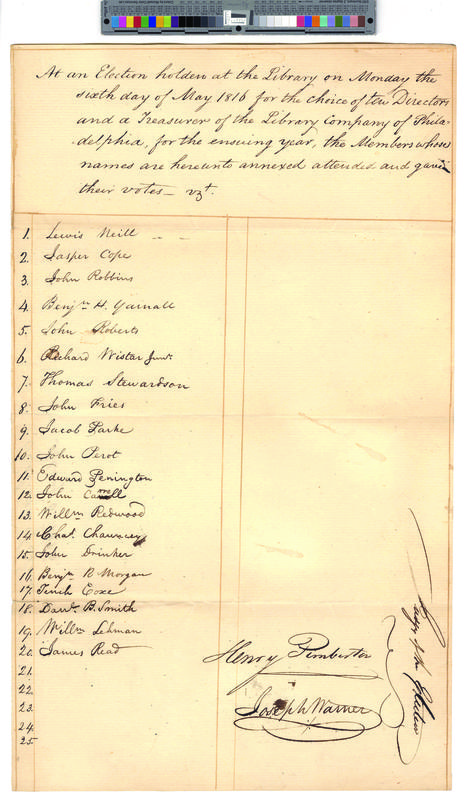 At an Election holden at the Library on Monday the
sixth day of May 1816 for the choice of ten Directors
and a Treasurer of the Library Company of Phila-
delphia, for the ensuing year, the Members whose
names are hereunto annexed attended and gave in
their votes — vzt.
1. Lewis Neill
2. Jasper Cope
3. John Robbins
4. Benjn H. Yarnall
5. John Roberts
6. Richard Wistar Junr
7. Thomas Stewardson
8. John Fries
9. Jacob Parke
10. John Perot
11. Edward Penington
12. John Carrell
13. Willm Redwood
14. Chas. Chauncey
15. John Drinker
16. Benjn R Morgan
17. Tench Coxe
18. Danl. B. Smith
19. Willm Lehman
20. James Read
21.
22.
23.
24.
25.
Henry Pemberton
Joseph Warner
Judges of the Election